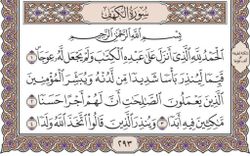 سورة الكهف
بسم الله الرحمن الرحيم
الحمد لله الذي أنزل على عبده الكتب ولم يجعل له عوجا ١
قيما لينذر بأسا شديدا من لدنه ويبشر المؤمنين
الذين يعملون الصلحت أن لهم أجرا حسنا ٢
مكثين فيه أبدا ٣ وينذر الذين قالوا اتخذ الله ولدا ٤
٢٩٣